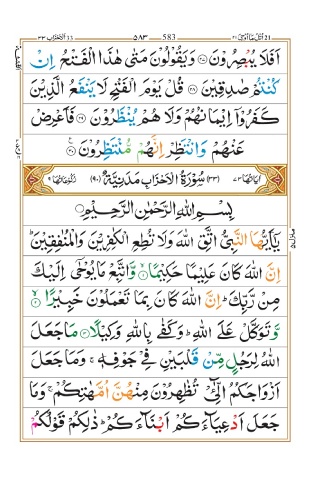 اتل مآ اوحی ۲۱ ۵۸۳ 583 الاحزاب ۳۳
اَفَلَا یُبْصِرُوْنَ ﴿۲۷﴾ وَیَقُوْلُوْنَ مَتٰی هٰذَا الْفَتْحُ اِنْ
كُنْتُمْ صٰدِقِیْنَ ﴿۲۸﴾ قُلْ یَوْمَ الْفَتْحِ لَا یَنْفَعُ الَّذِیْنَ
كَفَرُوْۤا اِیْمَانُهُمْ وَلَا هُمْ یُنْظَرُوْنَ ﴿۲۹﴾ فَاَعْرِضْ
عَنْهُمْ وَانْتَظِرْ اِنَّهُمْ مُّنْتَظِرُوْنَ ﴿۳۰﴾
اٰیاتها ۷۳ (۳۳) سُوْرَةُ الْاَحْزَابِ مَدَنِیَّةٌ (۹۰) رکوعاتها ۹
بِسْمِ اللّٰهِ الرَّحْمٰنِ الرَّحِیْمِ
یٰۤاَیُّهَا النَّبِیُّ اتَّقِ اللّٰهَ وَلَا تُطِعِ الْكٰفِرِیْنَ وَالْمُنٰفِقِیْنَ ؕ
اِنَّ اللّٰهَ كَانَ عَلِیْمًا حَكِیْمًا ﴿۱﴾ وَّاتَّبِعْ مَا یُوْحٰۤی اِلَیْكَ
مِنْ رَّبِّكَ ؕ اِنَّ اللّٰهَ كَانَ بِمَا تَعْمَلُوْنَ خَبِیْرًا ﴿۲﴾
وَّتَوَكَّلْ عَلَی اللّٰهِ ؕ وَكَفٰی بِاللّٰهِ وَكِیْلًا ﴿۳﴾ مَا جَعَلَ
اللّٰهُ لِرَجُلٍ مِّنْ قَلْبَیْنِ فِیْ جَوْفِهٖ ۚ وَمَا جَعَلَ
اَزْوَاجَكُمُ الّٰٓـِٔیْ تُظٰهِرُوْنَ مِنْهُنَّ اُمَّهٰتِكُمْ ۚ وَمَا
جَعَلَ اَدْعِیَآءَكُمْ اَبْنَآءَكُمْ ؕ ذٰلِكُمْ قَوْلُكُمْ